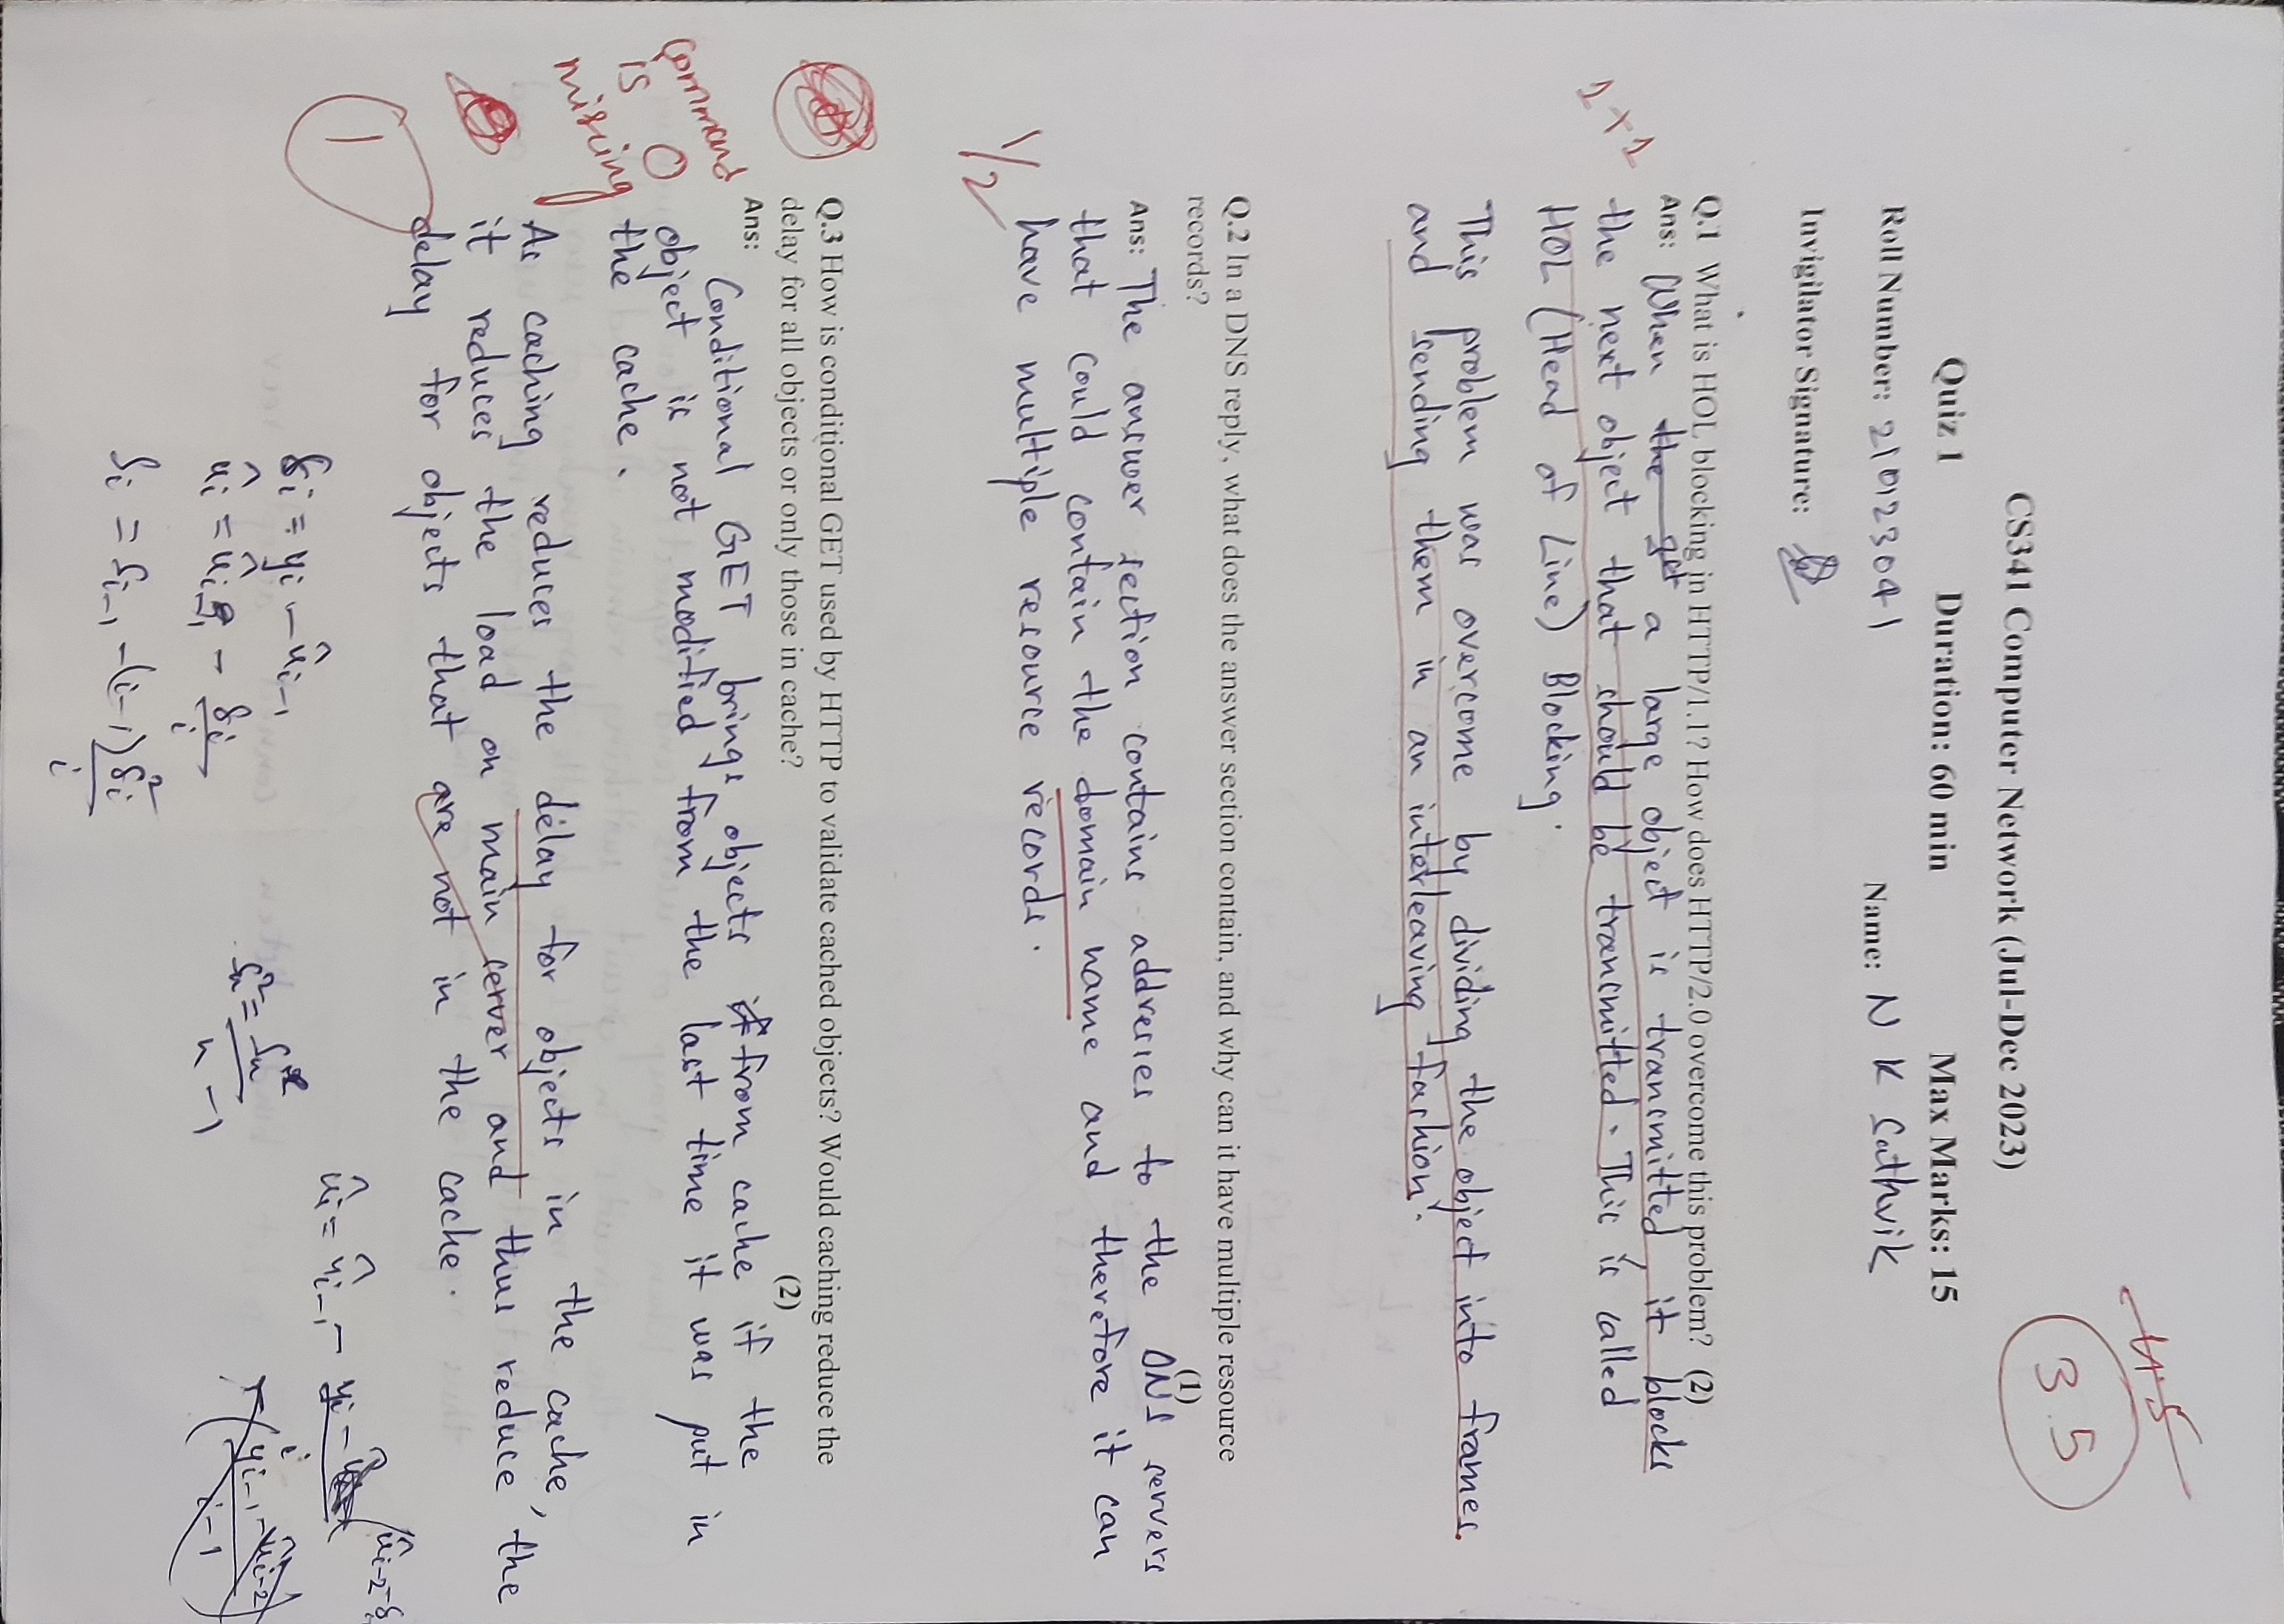 CS341 Computer Network (Jul-Dec 2023)
Quiz 1 Duration: 60 min Max Marks: 15
4.5
3.5
Roll Number: 210123041 Name: N K Sathvik
Invigilator Signature:
Q.1 What is HOL blocking in HTTP/1.1? How does HTTP/2.0 overcome this problem? (2)
Ans: When the get a large object is transmitted, it blocks
1+1
the next object that should be transmitted. This is called
HOL (Head of Line) Blocking.
This problem was overcome by dividing the object into frames
and sending them in an interleaving fashion.
Q.2 In a DNS reply, what does the answer section contain, and why can it have multiple resource
records? (1)
Ans: The answer section contains addresses to the DNS servers
that could contain the domain name and therefore it can
have multiple resource records.
1/2
Q.3 How is conditional GET used by HTTP to validate cached objects? Would caching reduce the
delay for all objects or only those in cache? (2)
Ans:
Conditional GET brings objects if from cache if the
object is not modified from the last time it was put in
the cache.
command
is 0
missing
As caching reduces the delay for objects in the cache,
it reduces the load on main server and thus reduce the
delay for objects that are not in the cache.
1
δi = yi - û i-1
û i = û i-1 - δi/i
Si = Si-1 - (i-1) δi²/i
û i = û i-1 -